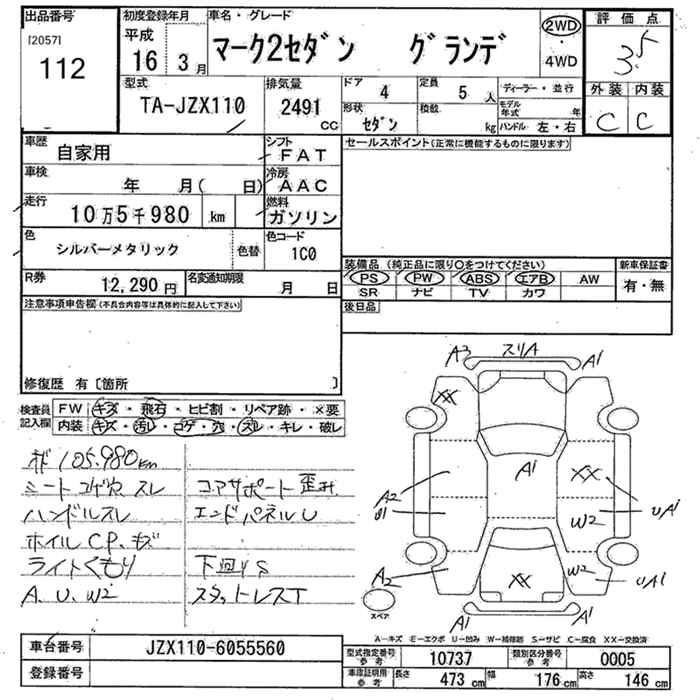 出品番号
[2057]
112
初度登録年月
平成
16年 3月
車名・グレード
マーク2セダン グランデ
2WD
・
4WD
評価点
3.5
外装 内装
C C
型式
TA-JZX110
排気量
2491
CC
ドア
4
定員
5人
ディーラー・並行
形状
セダン
積数
kg
モデル年式 年
ハンドル 左・右
車歴
自家用
シフト
FAT
車検
年 月( 日)
冷房
AAC
走行
10万5千980 km
燃料
ガソリン
色
シルバーメタリック
色替
色コード
1C0
R券
12,290円
名変通知期限
月 日
セールスポイント(正常に機能するものに限ります)
装備品 (純正品に限り○をつけてください)
PS PW ABS エアB AW
SR ナビ TV カワ
新車保証書
有・無
後日品
注意事項申告欄(不具合内容等は具体的に記入して下さい)
修復歴 有〔箇所 〕
検査員
記入欄
FW キズ・飛石・ヒビ割・リペア跡・×要
内装 キズ・汚レ・コゲ・穴・スレ・キレ・破レ
105.980km
シートコゲ穴 スレ
ハンドルスレ
ホイルCP、キズ
ライトくもり
A、U、W2
コアサポート歪み
エンドパネルU
下回りS
スタットレスT
A3 スリA A1
XX
A1
XX
A2
U1
UA1
W2
A2
XX
W2
UA1
A1
A1
スペア
A－キズ E－エクボ U－凹み W－補修跡 S－サビ C－腐食 XX－交換済
車台番号
JZX110-6055560
登録番号
型式指定番号
参考
10737
類別区分番号
参考
0005
車庫証明用
参考
長さ
473 cm
幅
176 cm
高さ
146 cm